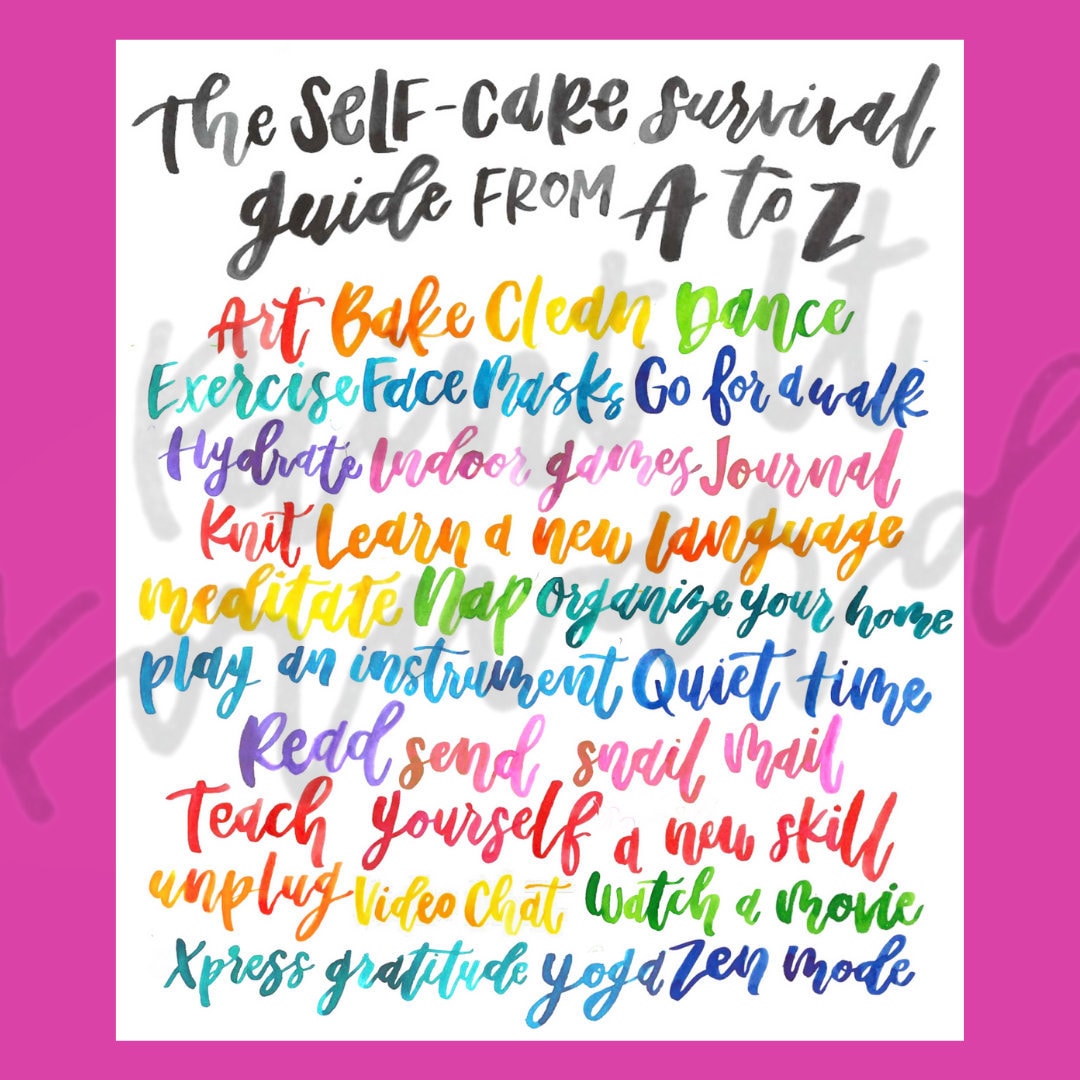 The SELF-CaRe survival
guide FROM A to Z
Art Bake Clean Dance
Exercise Face Masks Go for a walk
Hydrate Indoor games Journal
Knit Learn a new language
meditate Nap Organize your home
play an instrument Quiet time
Read send snail mail
Teach yourself a new skill
unplug Video Chat Watch a movie
Xpress gratitude yoga Zen mode
Paint It
Forward